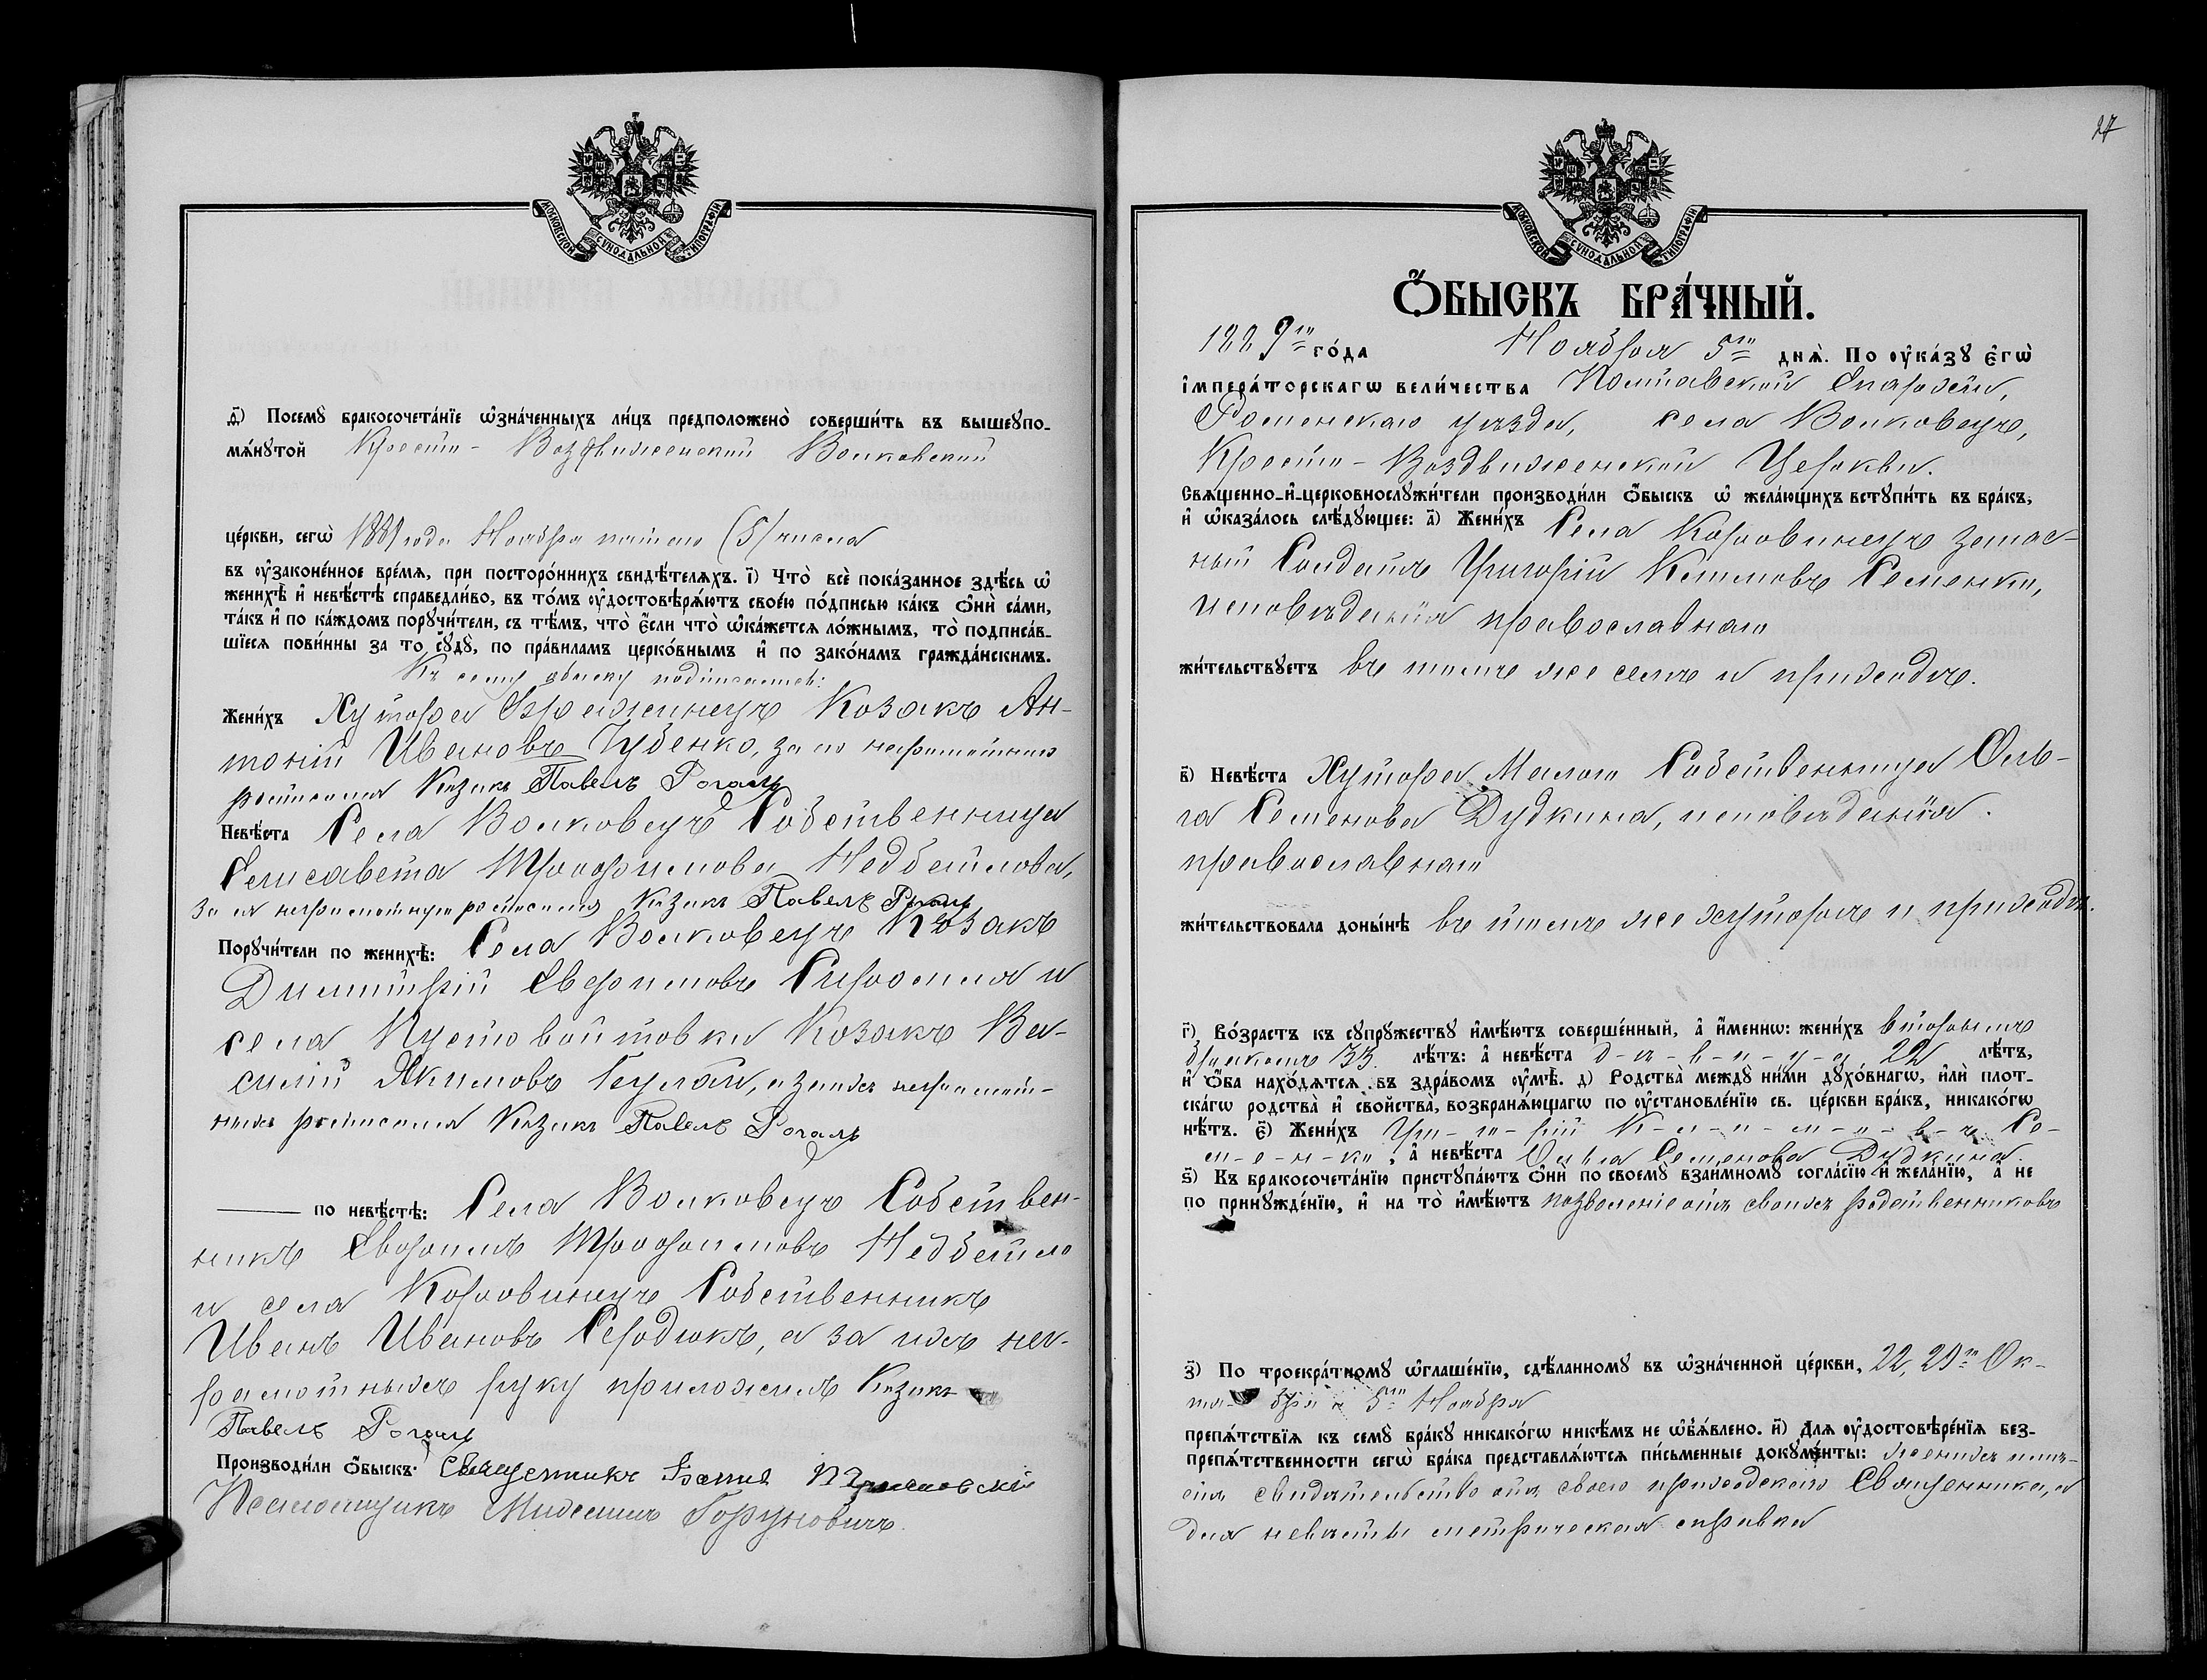 МОСКОВСКОЙ СѴНОДАЛЬНОЙ ТИПОГРАФІИ
ѳ҃) Посемꙋ̀ бракосочета́нїе ѡ҆зна́ченныхъ ли́цъ предположено̀ соверши́ть въ вышеꙋпо-
мѧ́нꙋтой Кресто-Воздвиженской Волковской
це́ркви, сегѡ̀ 1889 года Ноября пятого (5) числа
въ ᲂу҆законе́нное вре́мѧ, при посторо́ннихъ свидѣ́телѧхъ. і҃) Что̀ всѐ пока́занное здѣ́сь ѡ҆
женихѣ̀ и҆ невѣ́стѣ справедли́во, въ то́мъ ᲂу҆достовѣрѧ́ютъ свое́ю по́дписью ка́къ ѻ҆нѝ са́ми,
та́къ и҆ по ка́ждомъ порꙋчи́тели, съ тѣ́мъ, что̀ є҆́сли что̀ ѡ҆ка́жетсѧ ло́жнымъ, то̀ подписа́в-
шїесѧ пови́нны за то̀ сꙋдꙋ̀, по пра́виламъ церко́внымъ и҆ по зако́намъ гражда́нскимъ.
Къ сему обыску подписались:
Жени́хъ Хутора Козакъ Ан-
тоній Ивановъ Губенко, за него неграмотного
росписался Козакъ Павелъ Рогаль
Невѣ́ста Села Волковецъ Собственница
Елисавета Трофимова Недбайлова,
За ея неграмотную росписался Козакъ Павелъ Рогаль
Порꙋчи́тели по женихѣ̀: Села Волковецъ Козакъ
Димитрій Сиромля и
села Пустовойтовки Козакъ Ва-
силій Якимовъ, а за ихъ неграмот-
ныхъ росписался Козакъ Павелъ Рогаль
по невѣ́стѣ: Села Волковецъ Собствен-
никъ Трофимовъ Недбайло
и села Коровинецъ Собственникъ
Иванъ Ивановъ Сердюкъ, а за ихъ нег-
рамотныхъ руку приложилъ Козакъ
Павелъ Рогаль
Производи́ли ѻ҆́быскъ: Священникъ
Псаломщикъ Михаилъ Горуновичъ
27
МОСКОВСКОЙ СѴНОДАЛЬНОЙ ТИПОГРАФІИ
Ѻ҆́БЫСКЪ БРА́ЧНЫЙ.
1889го го́да Ноября 5го днѧ̀. По ᲂу҆ка́зꙋ є҆гѡ̀
і҆мпера́торскагѡ вели́чества Полтавской Епархіи,
Роменскаго уѣзда, села Волковецъ,
Кресто-Воздвиженской Церкви.
Свѧщенно-и҆-церковнослꙋжи́тели производи́ли ѻ҆́быскъ ѡ҆ жела́ющихъ встꙋпи́ть въ бра́къ,
и҆ ѡ҆каза́лось слѣ́дꙋющее: а҃) Жени́хъ Села Коровинецъ запас-
ный Солдатъ Григорій Климовъ Семенко,
исповѣданія православнаго
жи́тельствꙋетъ въ томъ же селѣ и приходѣ.
в҃) Невѣ́ста Хутора Малого Собственница Оль-
га Семенова Дудкина, исповѣданія
православнаго
жи́тельствовала доны́нѣ въ томъ же хуторѣ и приходѣ.
г҃) Во́зрастъ къ сꙋпрꙋ́жествꙋ и҆мѣ́ютъ соверше́нный, а҆ и҆́меннѡ: жени́хъ вторымъ
бракомъ 33 лѣ́тъ: а҆ невѣ́ста д-ѣ-в-и-ц-а 22 лѣ́тъ,
и҆ ѻ҆́ба нахо́дѧтсѧ въ здра́вомъ ᲂу҆мѣ̀. д҃) Родства̀ междꙋ̀ ни́ми дꙋхо́внагѡ, и҆лѝ пло́т-
скагѡ родства̀ и҆ сво́йства, возбранѧ́ющагѡ по ᲂу҆становле́нїю св. це́ркви бра́къ, никако́гѡ
нѣ́тъ. є҃) Жени́хъ Гри-го-рій К-л-и-м-о-в-ъ Се-
м-е-н-ко, а҆ невѣ́ста Ольга Семенова Дудкина.
ѕ҃) Къ бракосочета́нїю пристꙋпа́ютъ ѻ҆нѝ по своемꙋ̀ взаи́мномꙋ согла́сїю и҆ жела́нїю, а҆ не
по принꙋжде́нїю, и҆ на то̀ и҆мѣ́ютъ позволеніе отъ своихъ родственниковъ
з҃) По троекра́тномꙋ ѡ҆глаше́нїю, сдѣ́ланномꙋ въ ѡ҆зна́ченной це́ркви, 22, 29го Ок-
тября и 5го Ноября
препѧ́тствїѧ къ семꙋ̀ бра́кꙋ никако́гѡ никѣ́мъ не ѡ҆б̾ѧ́влено. и҃) Длѧ ᲂу҆достовѣре́нїѧ без-
препѧ́тственности сегѡ̀ бра́ка представлѧ́ютсѧ пи́сьменные докꙋме́нты:
свидѣтельство отъ своего приходскаго Священника, а
для невѣсты метрическая справка